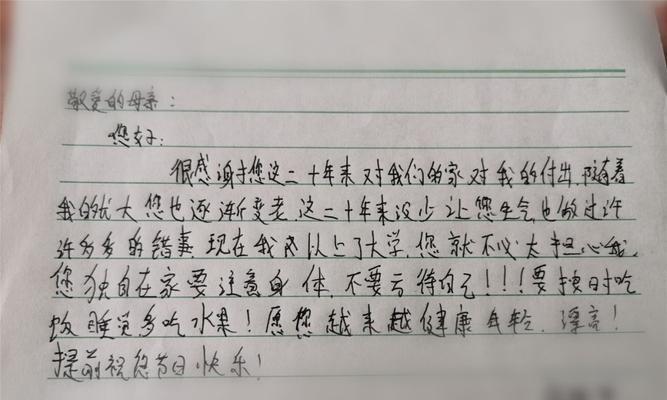 敬爱的母亲：
您好：
很感谢于您这二十年来对我们的家对我的付出，随着
我的长大您也逐渐变老 这二十年来没少让您生气也做过许
许多多的错事 现在我成以上了大学，您就不必太担心我，
您独自在家要注意身体，不要亏待自己！！！要按时吃
饭睡觉多吃水果！愿您越来越健康年轻、漂亮！
提前祝您节日快乐！